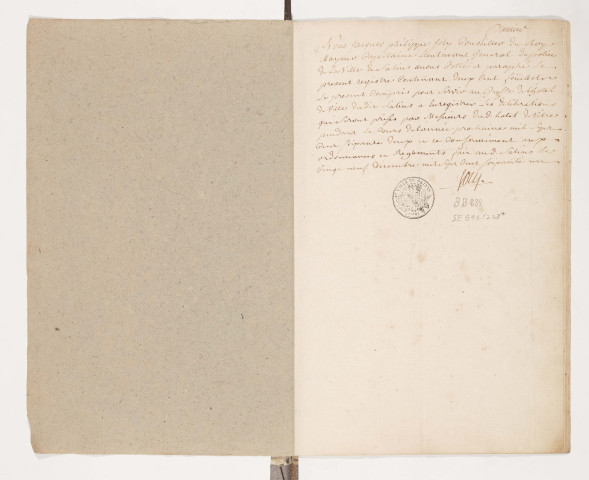 Premier
Nous Jacques philippe Joly Conseiller du Roy
Mayeur Capitaine Lieutenant General de police
de la Ville de Salins avons Cotté et paraphé le
present registre Contenant deux Cent feuillets
Le present Compris pour servir au Greffe de l'hotel
de Ville dudit Salins a Enregistrer Les deliberations
que seront prises par Messieurs dud hotel de Ville
pendant le Cours de l'année prochaine mil sept
Cent Soixante deux et ce Conformement aux
ordonnances et Reglements fait aud Salins le
vingt neuf Decembre mil sept Cent soixante un
Joly
BB